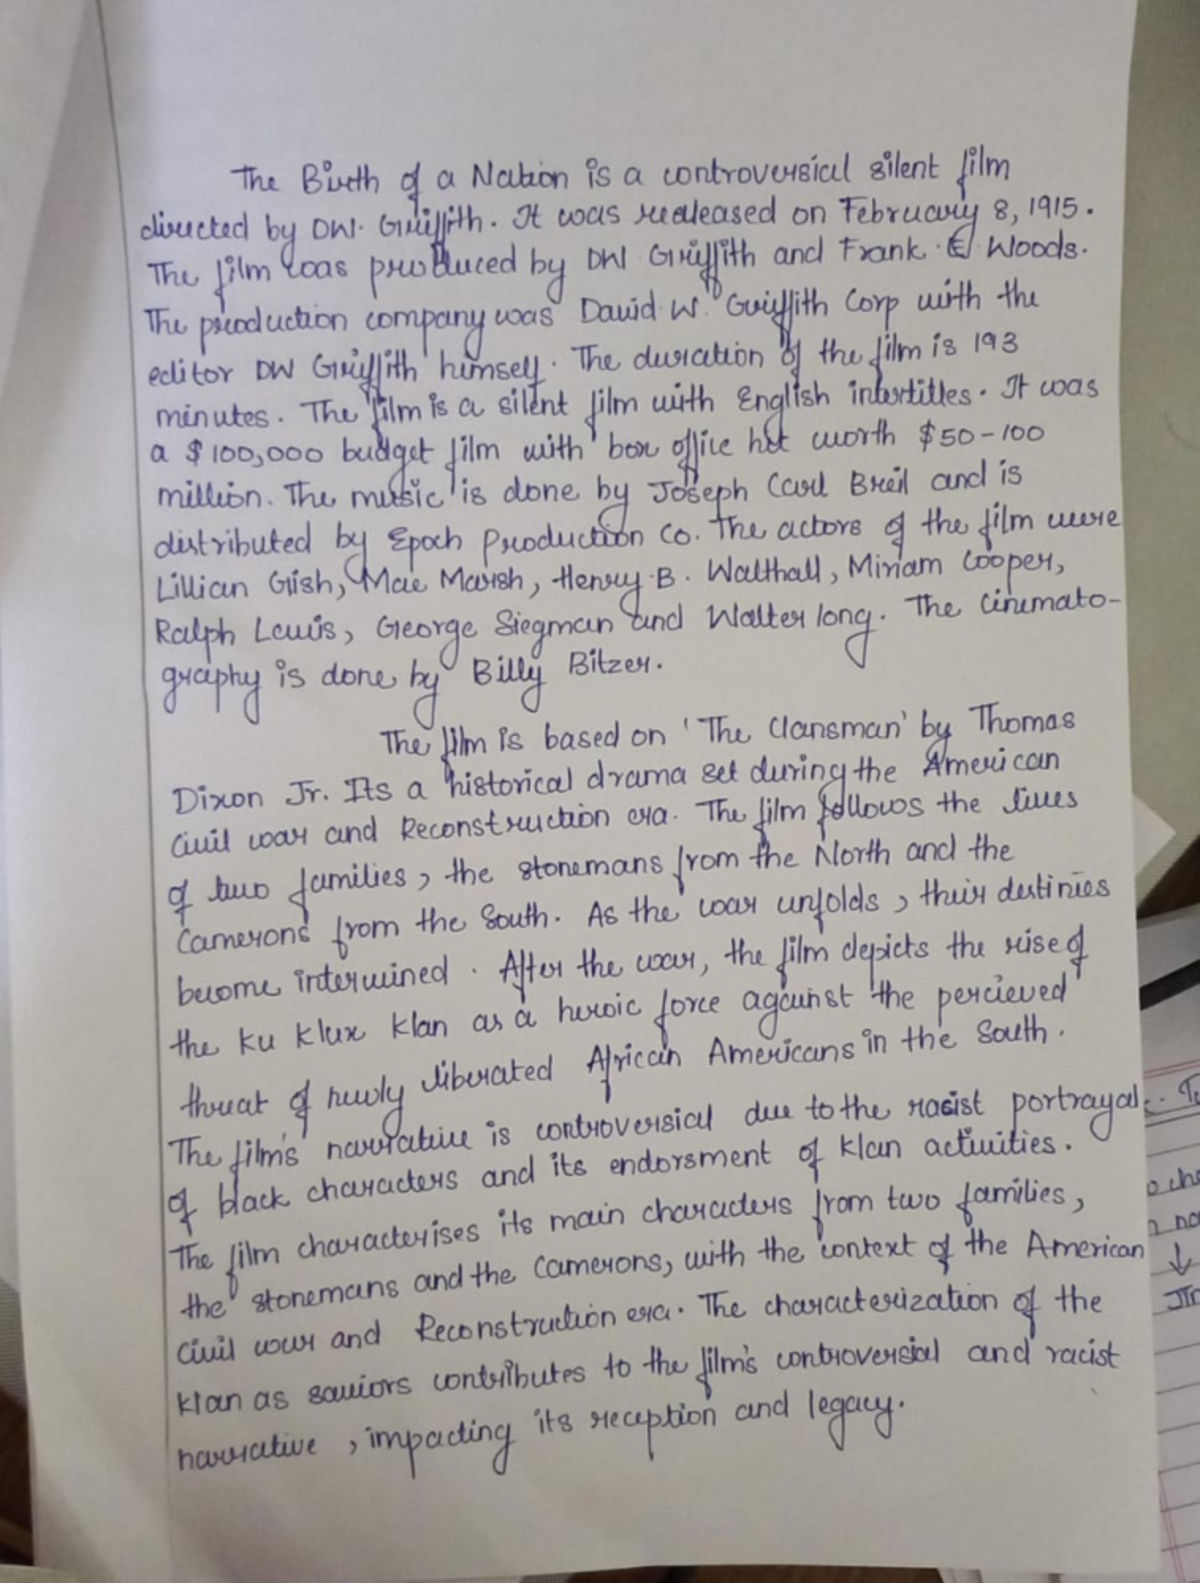 The Birth of a Nation is a controversical silent film
directed by DW. Griffith. It was realeased on February 8, 1915.
The film was produced by DW Griffith and Frank. E Woods.
The production company was David W. Griffith Corp with the
editor DW Griffith himself. The duration of the film is 193
minutes. The film is a silent film with English intertitles. It was
a $100,000 budget film with box office hit worth $50-100
million. The music is done by Joseph Carl Breil and is
distributed by Epoch Production Co. The actors of the film were
Lillian Gish, Mae Marsh, Henry.B. Walthall, Miriam Cooper,
Ralph Lewis, George Siegman and Walter long. The Cinemato-
graphy is done by Billy Bitzer.
The film is based on 'The Clansman' by Thomas
Dixon Jr. Its a historical drama set during the American
Civil war and Reconstruction era. The film follows the lives
of two families, the stonemans from the North and the
Camerons from the South. As the war unfolds, their destinies
become interwined. After the war, the film depicts the rise of
the Ku Klux Klan as a heroic force against the percieved
threat of newly liberated African Americans in the South.
The film's narrative is controversical due to the racist portrayal
of black characters and its endorsment of Klan activities.
The film characterises its main characters from two families,
the stonemans and the Camerons, with the context of the American
Civil war and Reconstruction era. The characterization of the
Klan as saviors contributes to the film's controversial and racist
narrative, impacting its reception and legacy.